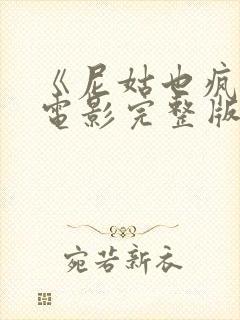 《尼姑也疯
电影完整版
宛若新衣